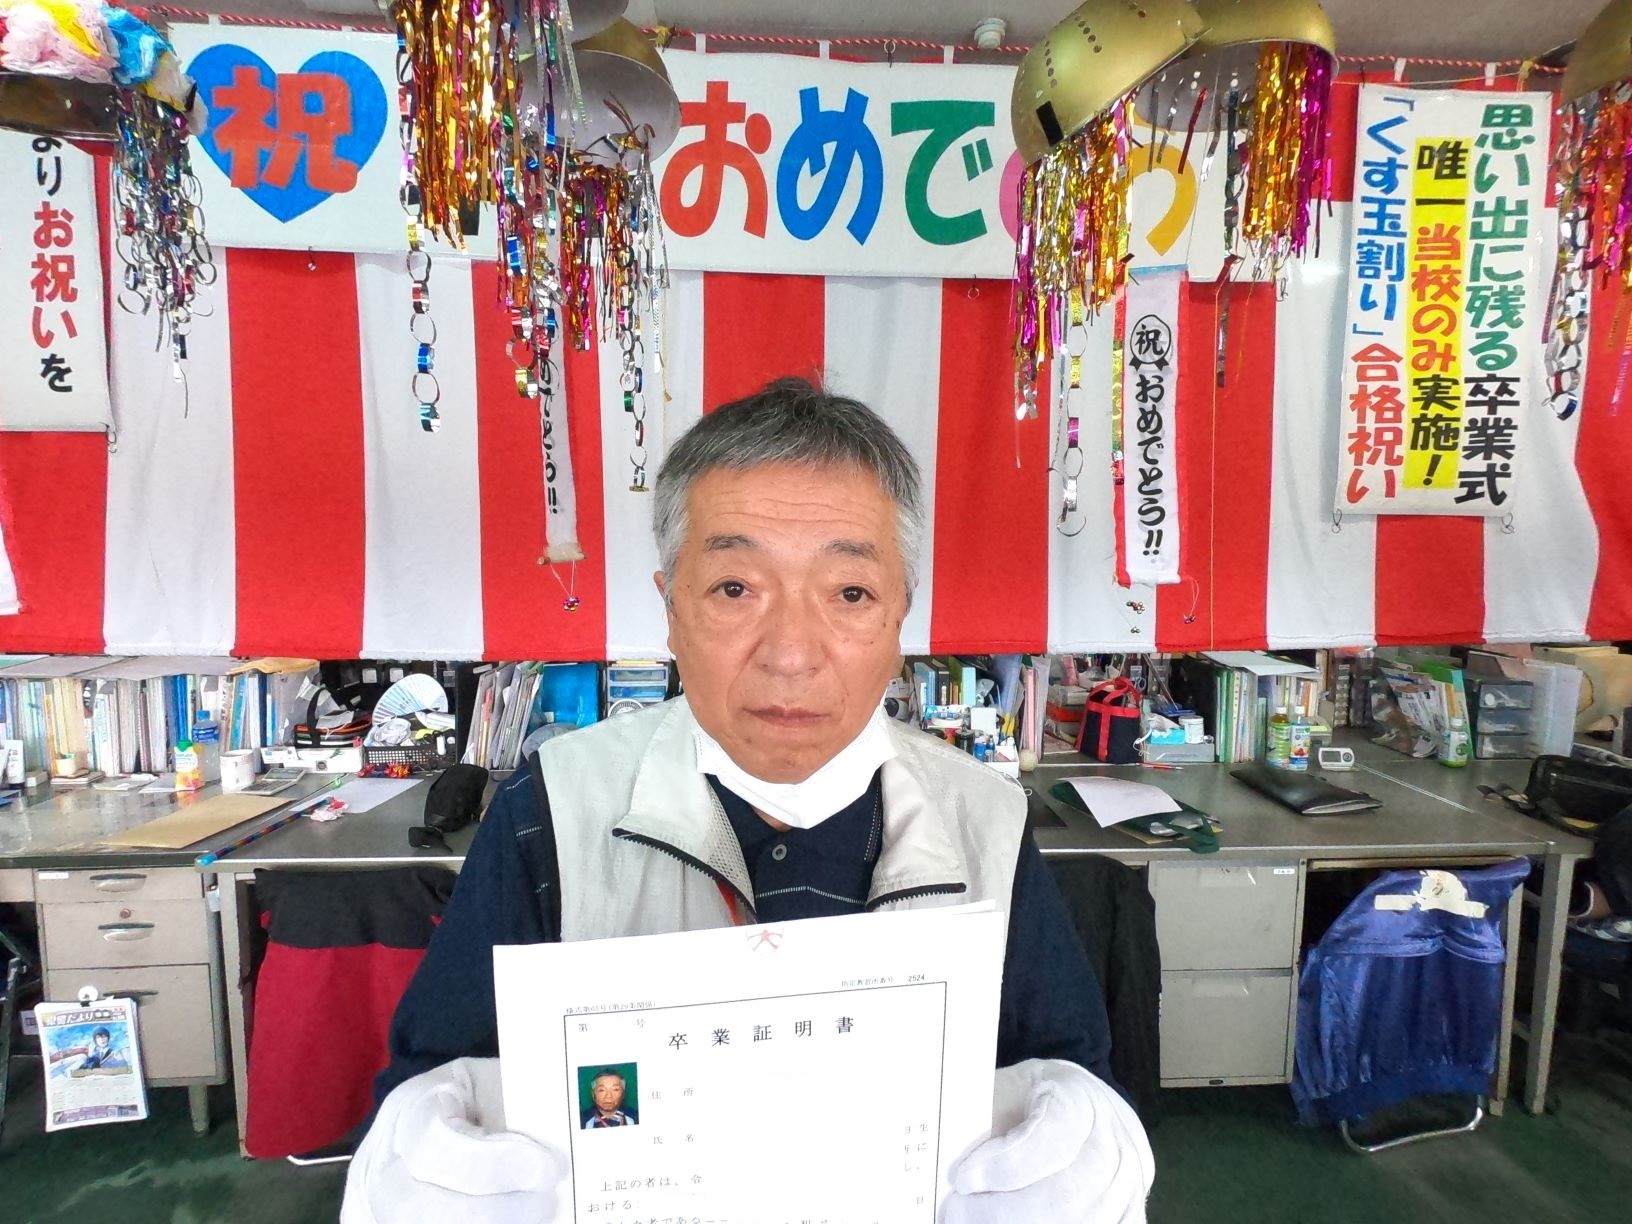 よりお祝いを
祝
おめでとう
のでとう!!
祝おめでとう!!
思い出に残る卒業式
唯一当校のみ実施!
「くす玉割り」合格祝い
指定教習所番号 2524
様式第65号(第29条関係)
第 号
卒業証明書
住 所
氏 名
日生
所に
し、
上記の者は、令
おける
日